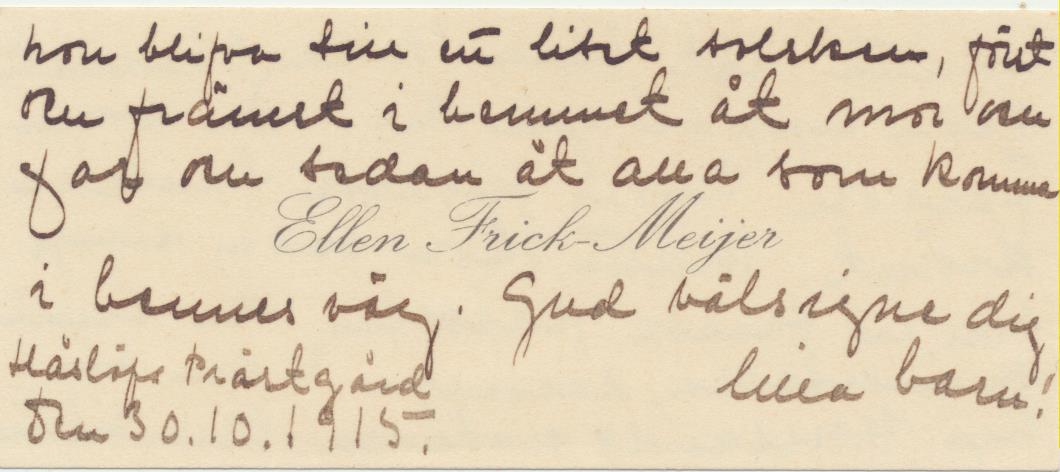 hon blifva till ett litet solsken, först
och främst i hemmet åt mor och
far och sedan åt alla som komma
Ellen Frick-Meijer
i hennes väg. Gud välsigne dig
lilla barn!
Häslöfs Prästgård
den 30.10.1915.